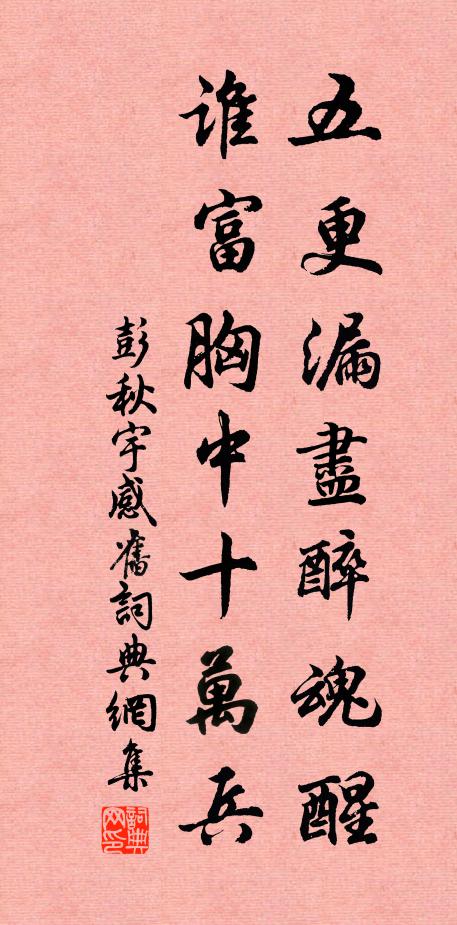 五更漏盡醉魂醒
誰富胸中十萬兵
彭秋宇感舊詞典網集
詞典网印